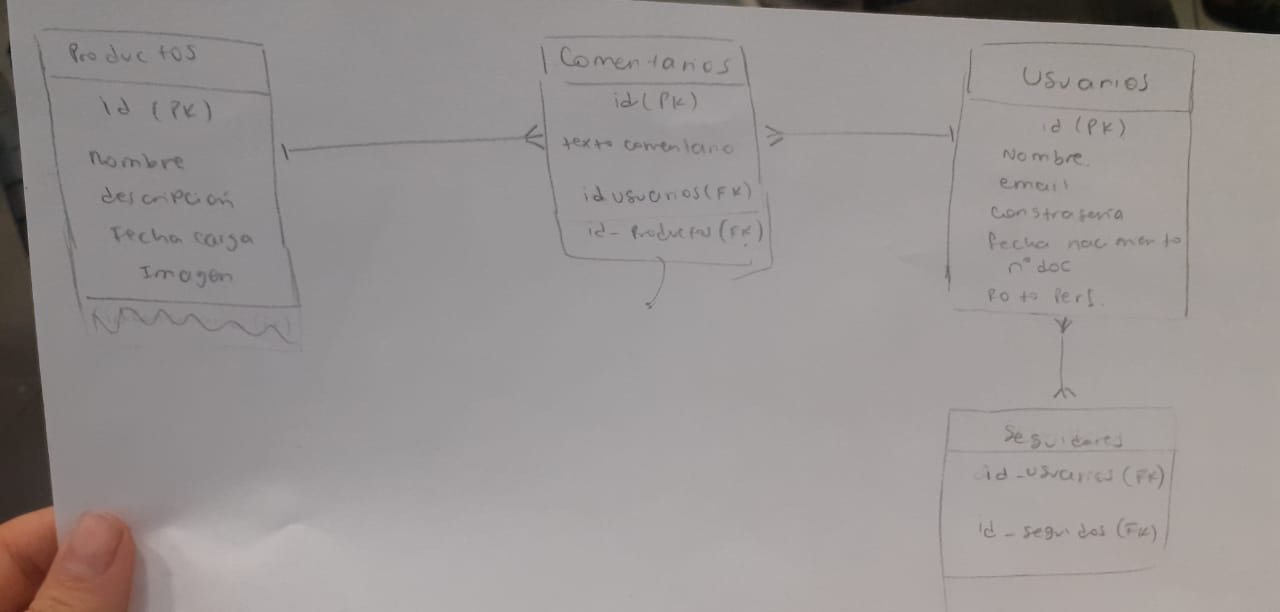 Productos
id (PK)
nombre
descripción
Fecha carga
Imagen
Comentarios
id (PK)
texto comentario
id usuarios (FK)
id_productos (FK)
Usuarios
id (PK)
Nombre.
email
constraseña
fecha nacimento
n° doc
Foto Perf.
Seguidores
id_usuarios (FK)
id_seguidos (FK)